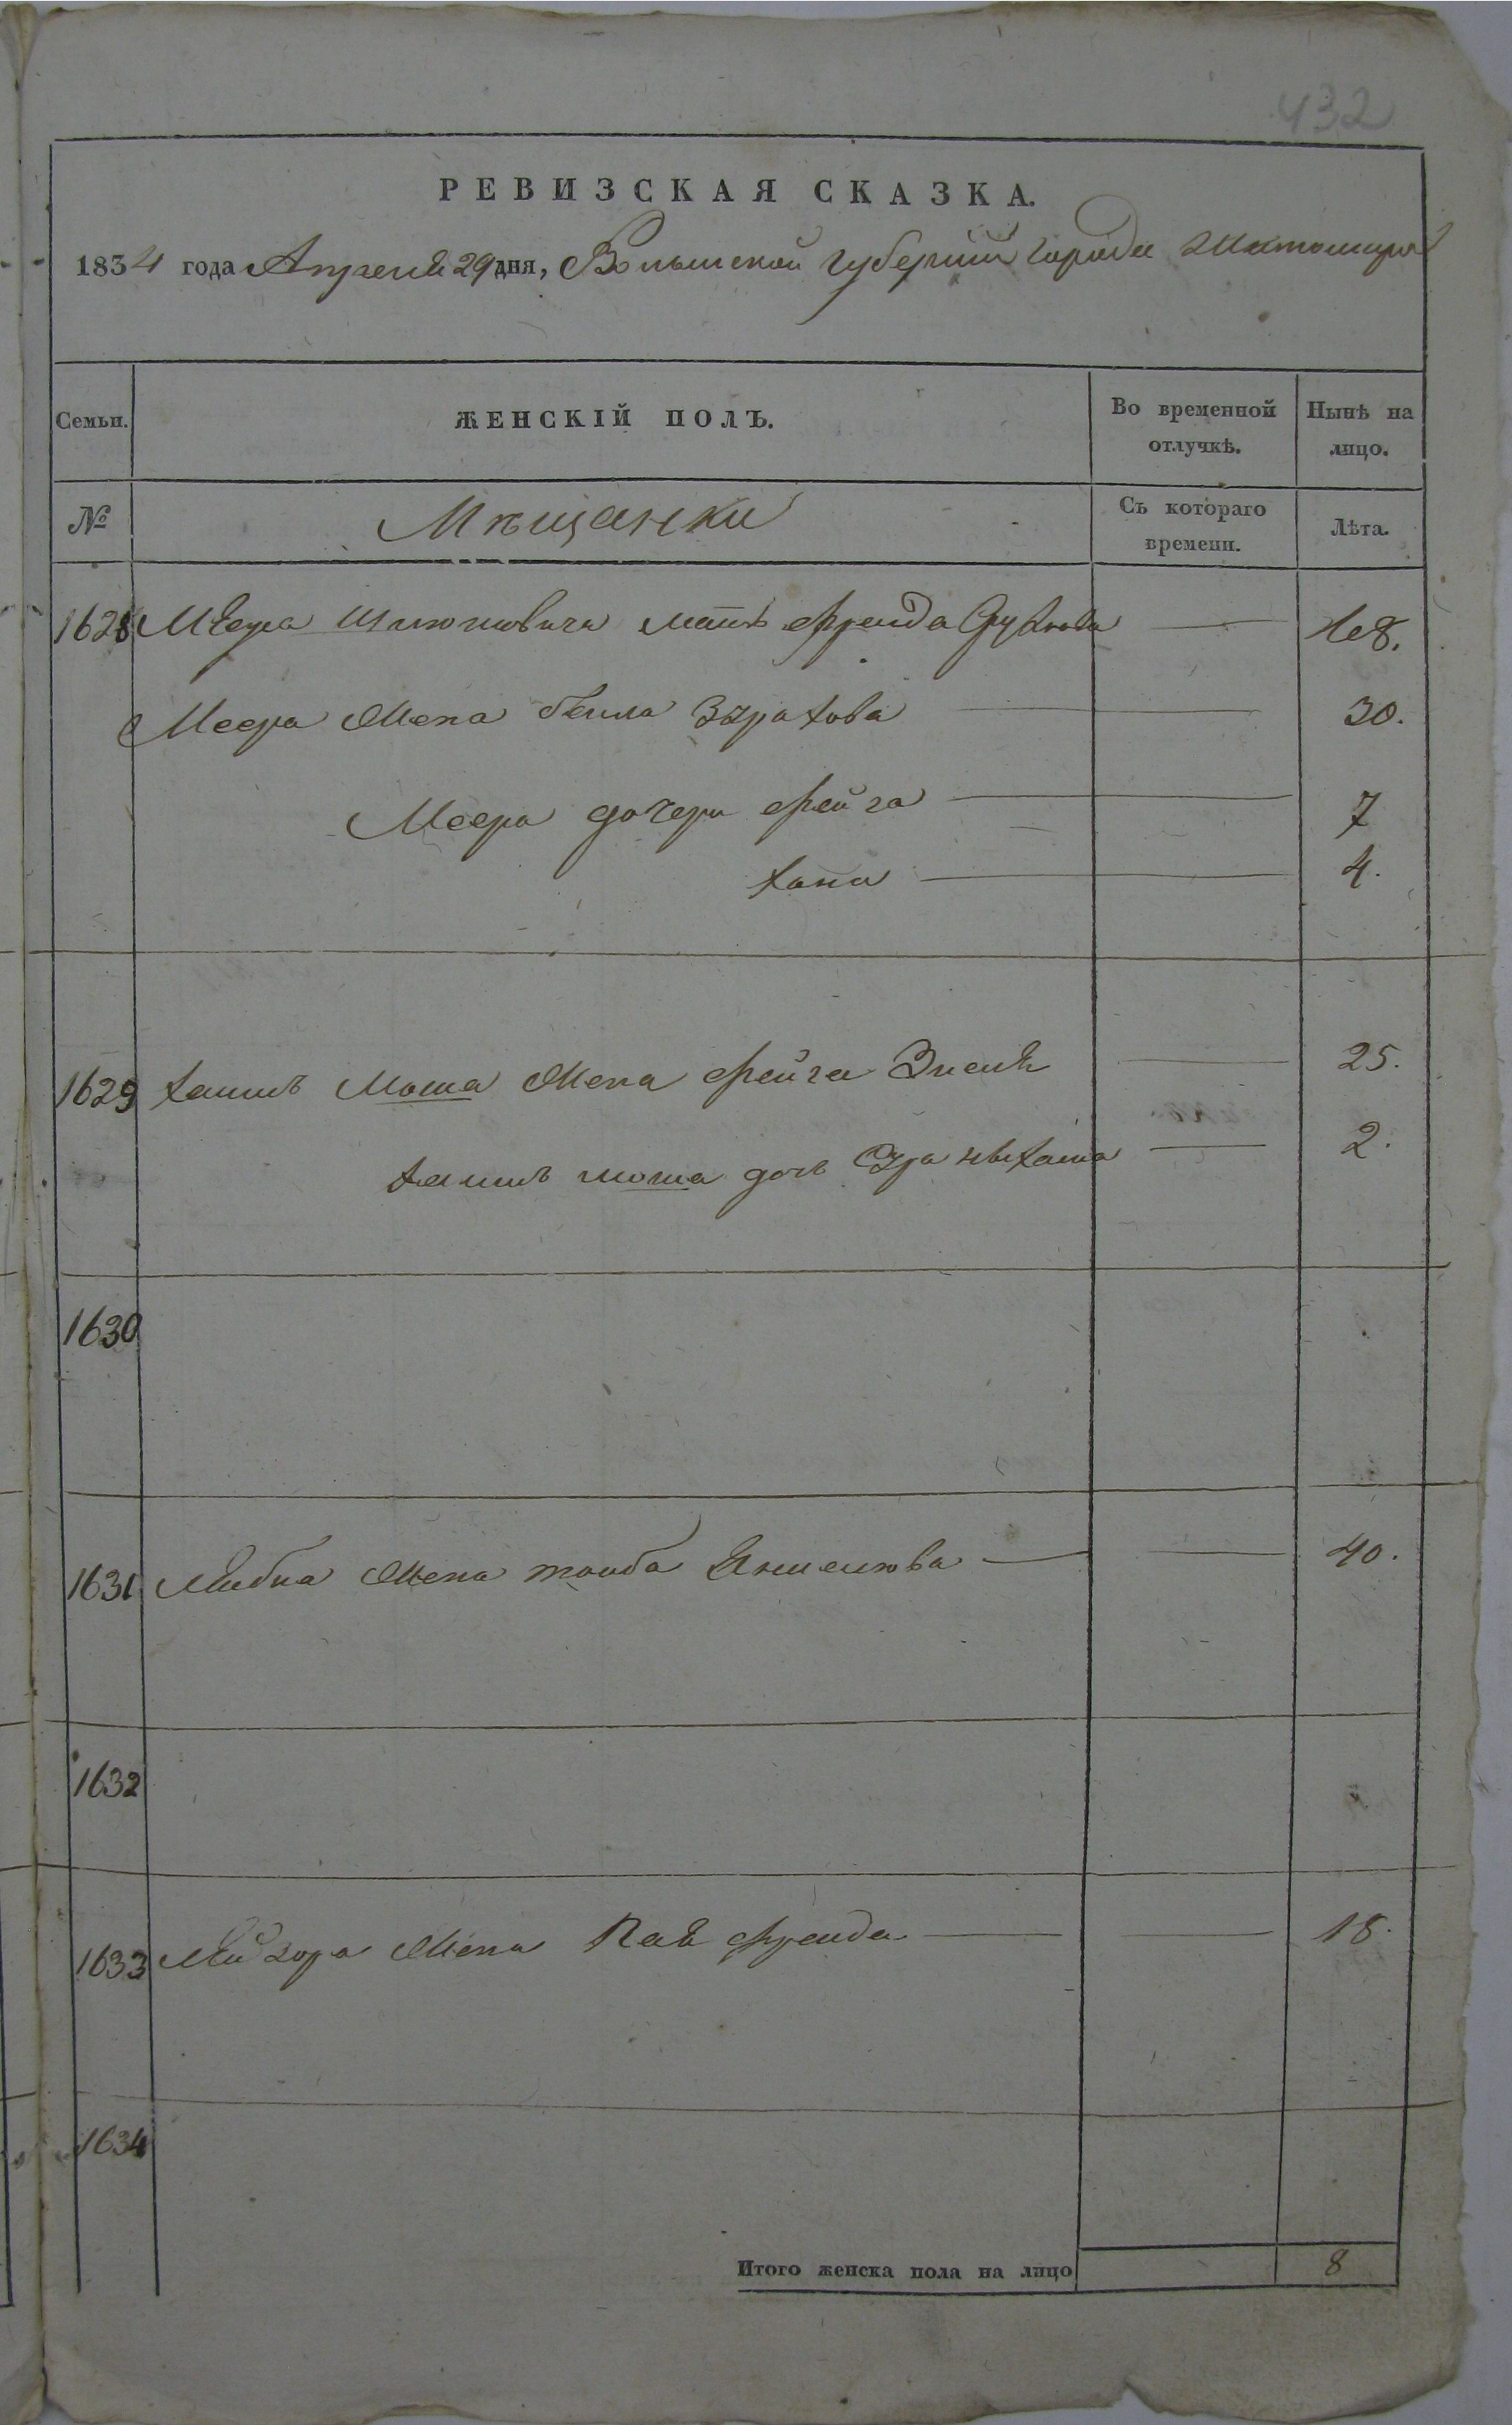 432
РЕВИЗСКАЯ СКАЗКА.
1834 года Апреля 29 дня, Волынской губернии города Житомира
Семьи. ЖЕНСКІЙ ПОЛЪ. Во временной отлучкѣ. Нынѣ на лицо.
№ Мѣщанки Съ котораго времени. Лѣта.
1628 Меера мать фрейда 48.
Меера жена бейла 30.
Меера дочери фейга 7
хана 4.
1629 Мошка жена фейга 25.
дочь Сура 2.
1630
1631 Лейбиа жена тауба Яншелюва 40.
1632
1633 жена фрейда 18.
1634
Итого женска пола на лицо 8